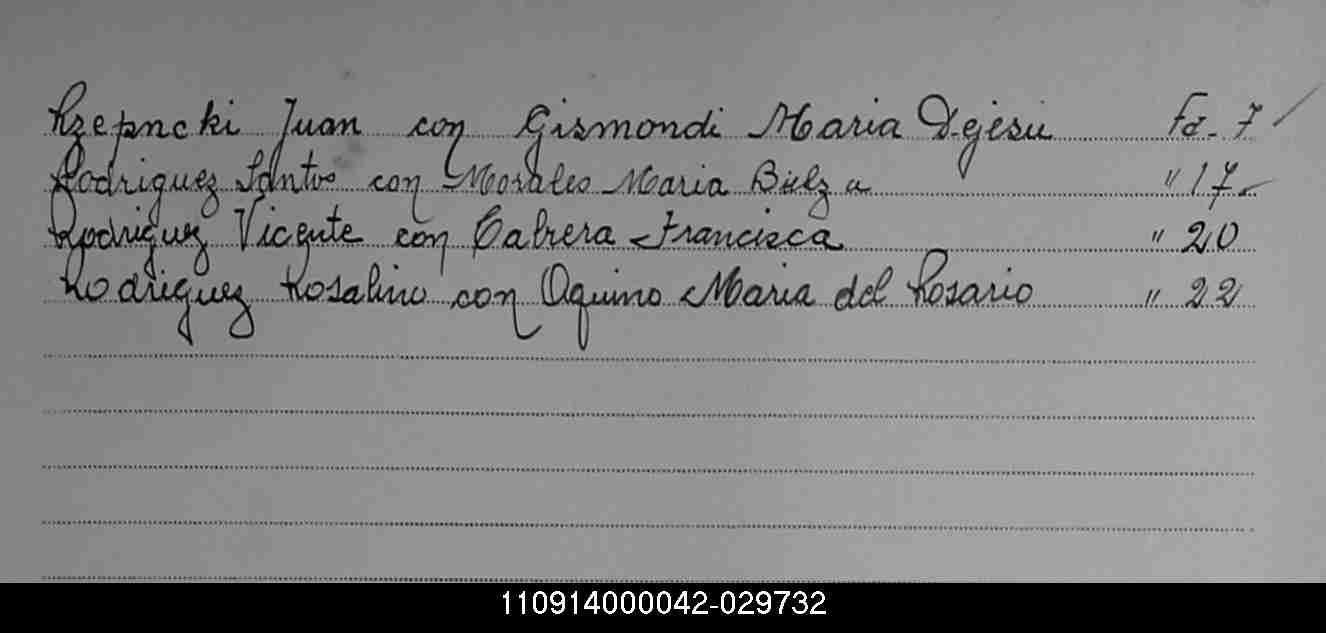 Rzepncki Juan con Gismondi Maria Dejesu Fo. 7
Rodriguez Santos con Morales Maria " 17
Rodriguez Vicente con Cabrera Francisca " 20
Rodriguez Rosalino con Oquino Maria del Rosario " 22
110914000042-029732